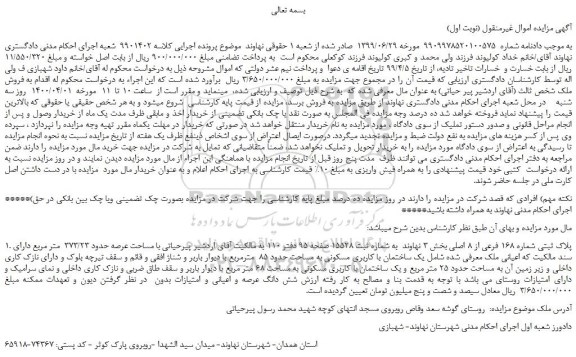 بسمه تعالی
آگهی مزایده اموال غیرمنقول (نوبت اول)
به موجب دادنامه شماره ۹۹۰۹۹۷۸۵۲۰۱۰۰۵۷۵ مورخه ۱۳۹۹/۰۶/۲۹ صادر از شعبه ۱ حقوقی نهاوند موضوع پرونده اجرایی کلاسه ۹۹۰۱۴۰۲ شعبه اجرای احکام مدنی دادگستری
نهاوند آقای/خانم خداد کولیوند فرزند ولی محمد و کبری کولیوند فرزند کوکعلی محکوم است به پرداخت تضامنی مبلغ ۹۰۰/۰۰۰/۰۰۰ ریال از بابت اصل خواسته و مبلغ ۱۱/۵۵۰/۳۲۰
ریال از بابت خسارت و خسارات تاخیر تادیه، از تاریخ ۹۹/۴/۵ تاریخ اقامه ی دعوا و پرداخت نیم عشر دولتی که اموال مشروحه ذیل به درخواست محکوم له آقای/خانم داود شهبازی ف ولی
اله توسط کارشناسان دادگستری ارزیابی که قیمت آن را در مجموع جهت مزایده به مبلغ ۳/۶۵۰/۰۰۰/۰۰۰ ریال برآورد شده است که این اجراء به درخواست محکوم له اقدام به فروش
ملک شخص ثالث (آقای اردشیر پیر حیاتی) به عنوان مال معرفی شده که به شرح ذیل توصیف و ارزیابی شده، مینماید و مقرر است از ساعت ۱۰ تا ۱۱ مورخه ۱۴۰۰/۰۴/۰۱ روز سه
شنبه در محل شعبه اجرای احکام مدنی دادگستری نهاوند از طریق مزایده به فروش برسد، مزایده از قیمت پایه کارشناسی شروع میشود و به هر شخص حقیقی یا حقوقی که بالاترین
قیمت را پیشنهاد نماید فروخته خواهد شد ده درصد وجه مزایده فی المجلس به صورت نقد یا چک بانکی تضمینی از خریدار اخذ و مابقی ظرف مدت یک ماه از خریدار وصول و پس از
انجام مراحل قانونی و صدور دستور تملیک از سوی دادگاه مورد مزایده به نام خریدار انتقال خواهد شد در صورتی که خریدار در مهلت یکماه مقرر تهیه وجه مزایده را نپردازد، سپرده
وی پس از کسر هزینه های مزایده به نفع دولت ضبط و مزایده تجدید میگردد. درصورت ایصال اعتراض از سوی اشخاص ذینفع ظرف یک هفته از تاریخ مزایده نسبت به نحوه انجام مزایده
تا رسیدگی به اعتراض از سوی دادگاه مورد مزایده را به خریدار تحویل و تملیک نخواهد شد ضمناً متقاضیانی که تمایل به شرکت در مزایده جهت خرید مال مورد مزایده را دارند ضمن
مراجعه به دفتر اجرای احکام مدنی دادگستری می توانند ظرف مدت پنج روز قبل از تاریخ انجام مزایده با هماهنگی این اجراء از مال مورد مزایده دیدن نمایند و در روز مزایده نسبت به
ارائه درخواست کتبی خود قیمت پیشنهادی را به همراه فیش واریزی به مبلغ ۱۰٪ قیمت کارشناسی به اجرای احکام اعلام و به عنوان خریدار مال مورد مزایده با در دست داشتن اصل
کارت ملی در جلسه حاضر شوند.
نکته مهم) افرادی که قصد شرکت در مزایده را دارند در روز مزایده ده درصد مبلغ پایه کارشناسی را جهت شرکت در مزایده بصورت چک تضمینی ویا چک بین بانکی در حق)*****
اجرای احکام مدنی نهاوند به همراه داشته باشید*****
مال مورد مزایده و بهای آن طبق نظر کارشناس بدین شرح میباشد:
پلاک ثبتی شماره ۱۶۸ فرعی از ۸ اصلی بخش ۳ نهاوند به شماره ثبت ۱۵۵۴۸ صفحه ۹۵ دفتر ۱۱۰ به مالکیت آقای اردشیر پیرحیاتی با مساحت عرصه حدود ۳۷۳/۲۳ متر مربع دارای .۱
سند مالکیت که اعیانی ملک معرفی شده شامل یک ساختمان با کاربری مسکونی به مساحت حدود ۸۵ مترمربع با دیوار باربر و شناژ افقی و قائم و سقف تیرچه بلوک و دارای نازک کاری
داخلی و زیر زمین آن به مساحت حدود ۲۵ متر مربع و یک ساختمان با کاربری مسکونی به مساحت ۴۸ متر مربع با دیوار باربر و سقف طاق ضربی و نازک کاری داخلی و نمای سرامیک و
دارای امتیازات روستای می باشد با توجه به قدمت بنا و مصالح به کار رفته ارزش شش دانگ عرصه و اعیانی و امتیازات بدون در نظر گرفتن دیون و تعهدات ممکنه مبلغ
۳/۶۵۰/۰۰۰/۰۰۰ ریال معادل سیصد و شصت و پنج میلیون تومان تعیین گردیده است.
آدرس ملک موضوع مزایده: روستای گوشه سعد وقاص روبروی مسجد انتهای کوچه شهید محمد رسول پیرحیاتی
دادورز شعبه اول اجرای احکام مدنی شهرستان نهاوند- شهبازی
استان همدان- شهرستان نهاوند- میدان سید الشهدا -روبروی پارک کوثر - کد پستی: ۷۴۳۶۷-۶۵۹۱۸